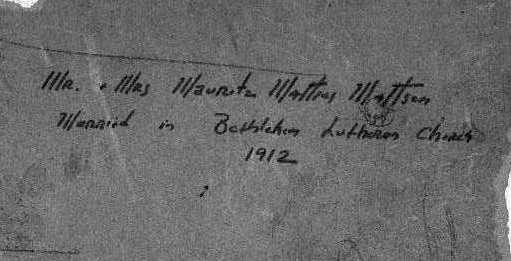 Mr. & Mrs Mauritz Mattias Mattson
Married in Bethlehem Lutheran Church
1912